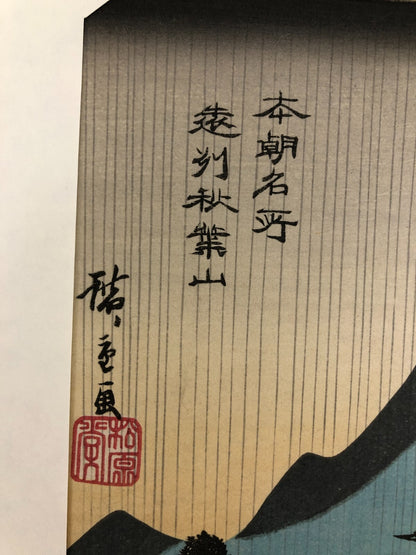 本朝名所
遠州秋葉山
廣重画
松原堂